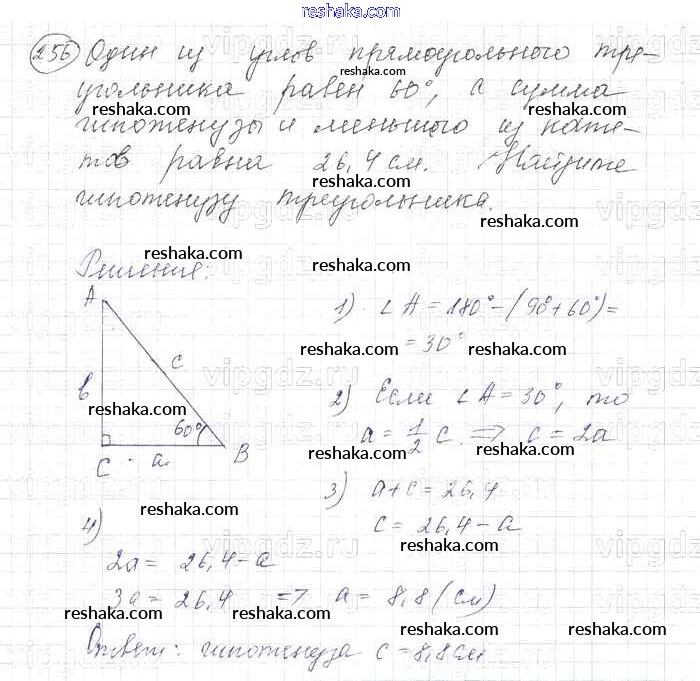 reshaka.com
256 Один из углов прямоугольного тре-
reshaka.com
угольника равен 60°, а сумма
reshaka.com reshaka.com
гипотенузы и меньшего из кате-
тов равна 26,4 см. Найдите
reshaka.com
гипотенузу треугольника.
reshaka.com
reshaka.com
Решение: reshaka.com
A
1) ∠A = 180° - (90° + 60°) =
reshaka.com reshaka.com
= 30°
c
b
2) Если ∠A = 30°, то
reshaka.com
60°
a = 1/2 c ⇒ c = 2a
reshaka.com reshaka.com
C a B
3) a + c = 26,4
reshaka.com
c = 26,4 - a
4)
reshaka.com
2a = 26,4 - a
3a = 26,4 => a = 8,8 (см)
reshaka.com reshaka.com reshaka.com
Ответ: гипотенуза c = 8,8 см
reshaka.com